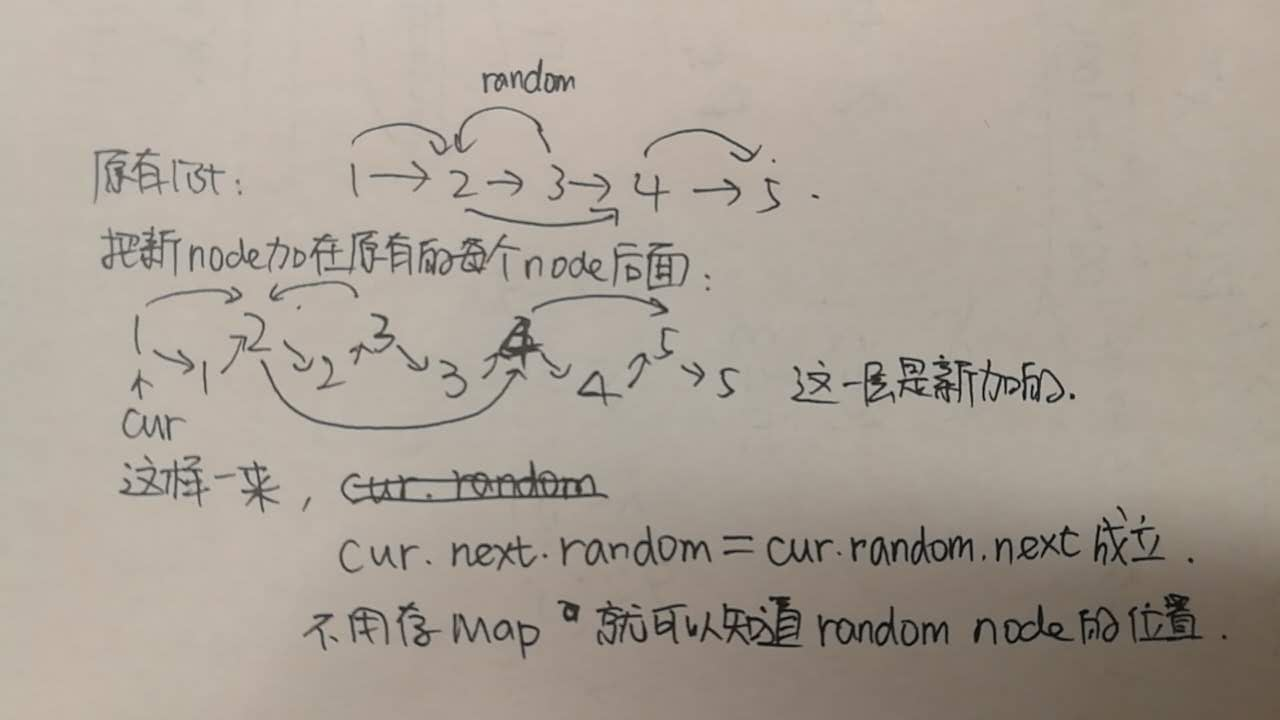 random
原有list: 1 → 2 → 3 → 4 → 5.
把新node加在原有的每个node后面:
1 2 3 4 5
1 2 3 4 5 这一层是新加的.
cur
这样一来, cur.random
cur.next.random = cur.random.next 成立.
不用存Map 就可以知道 random node的位置.